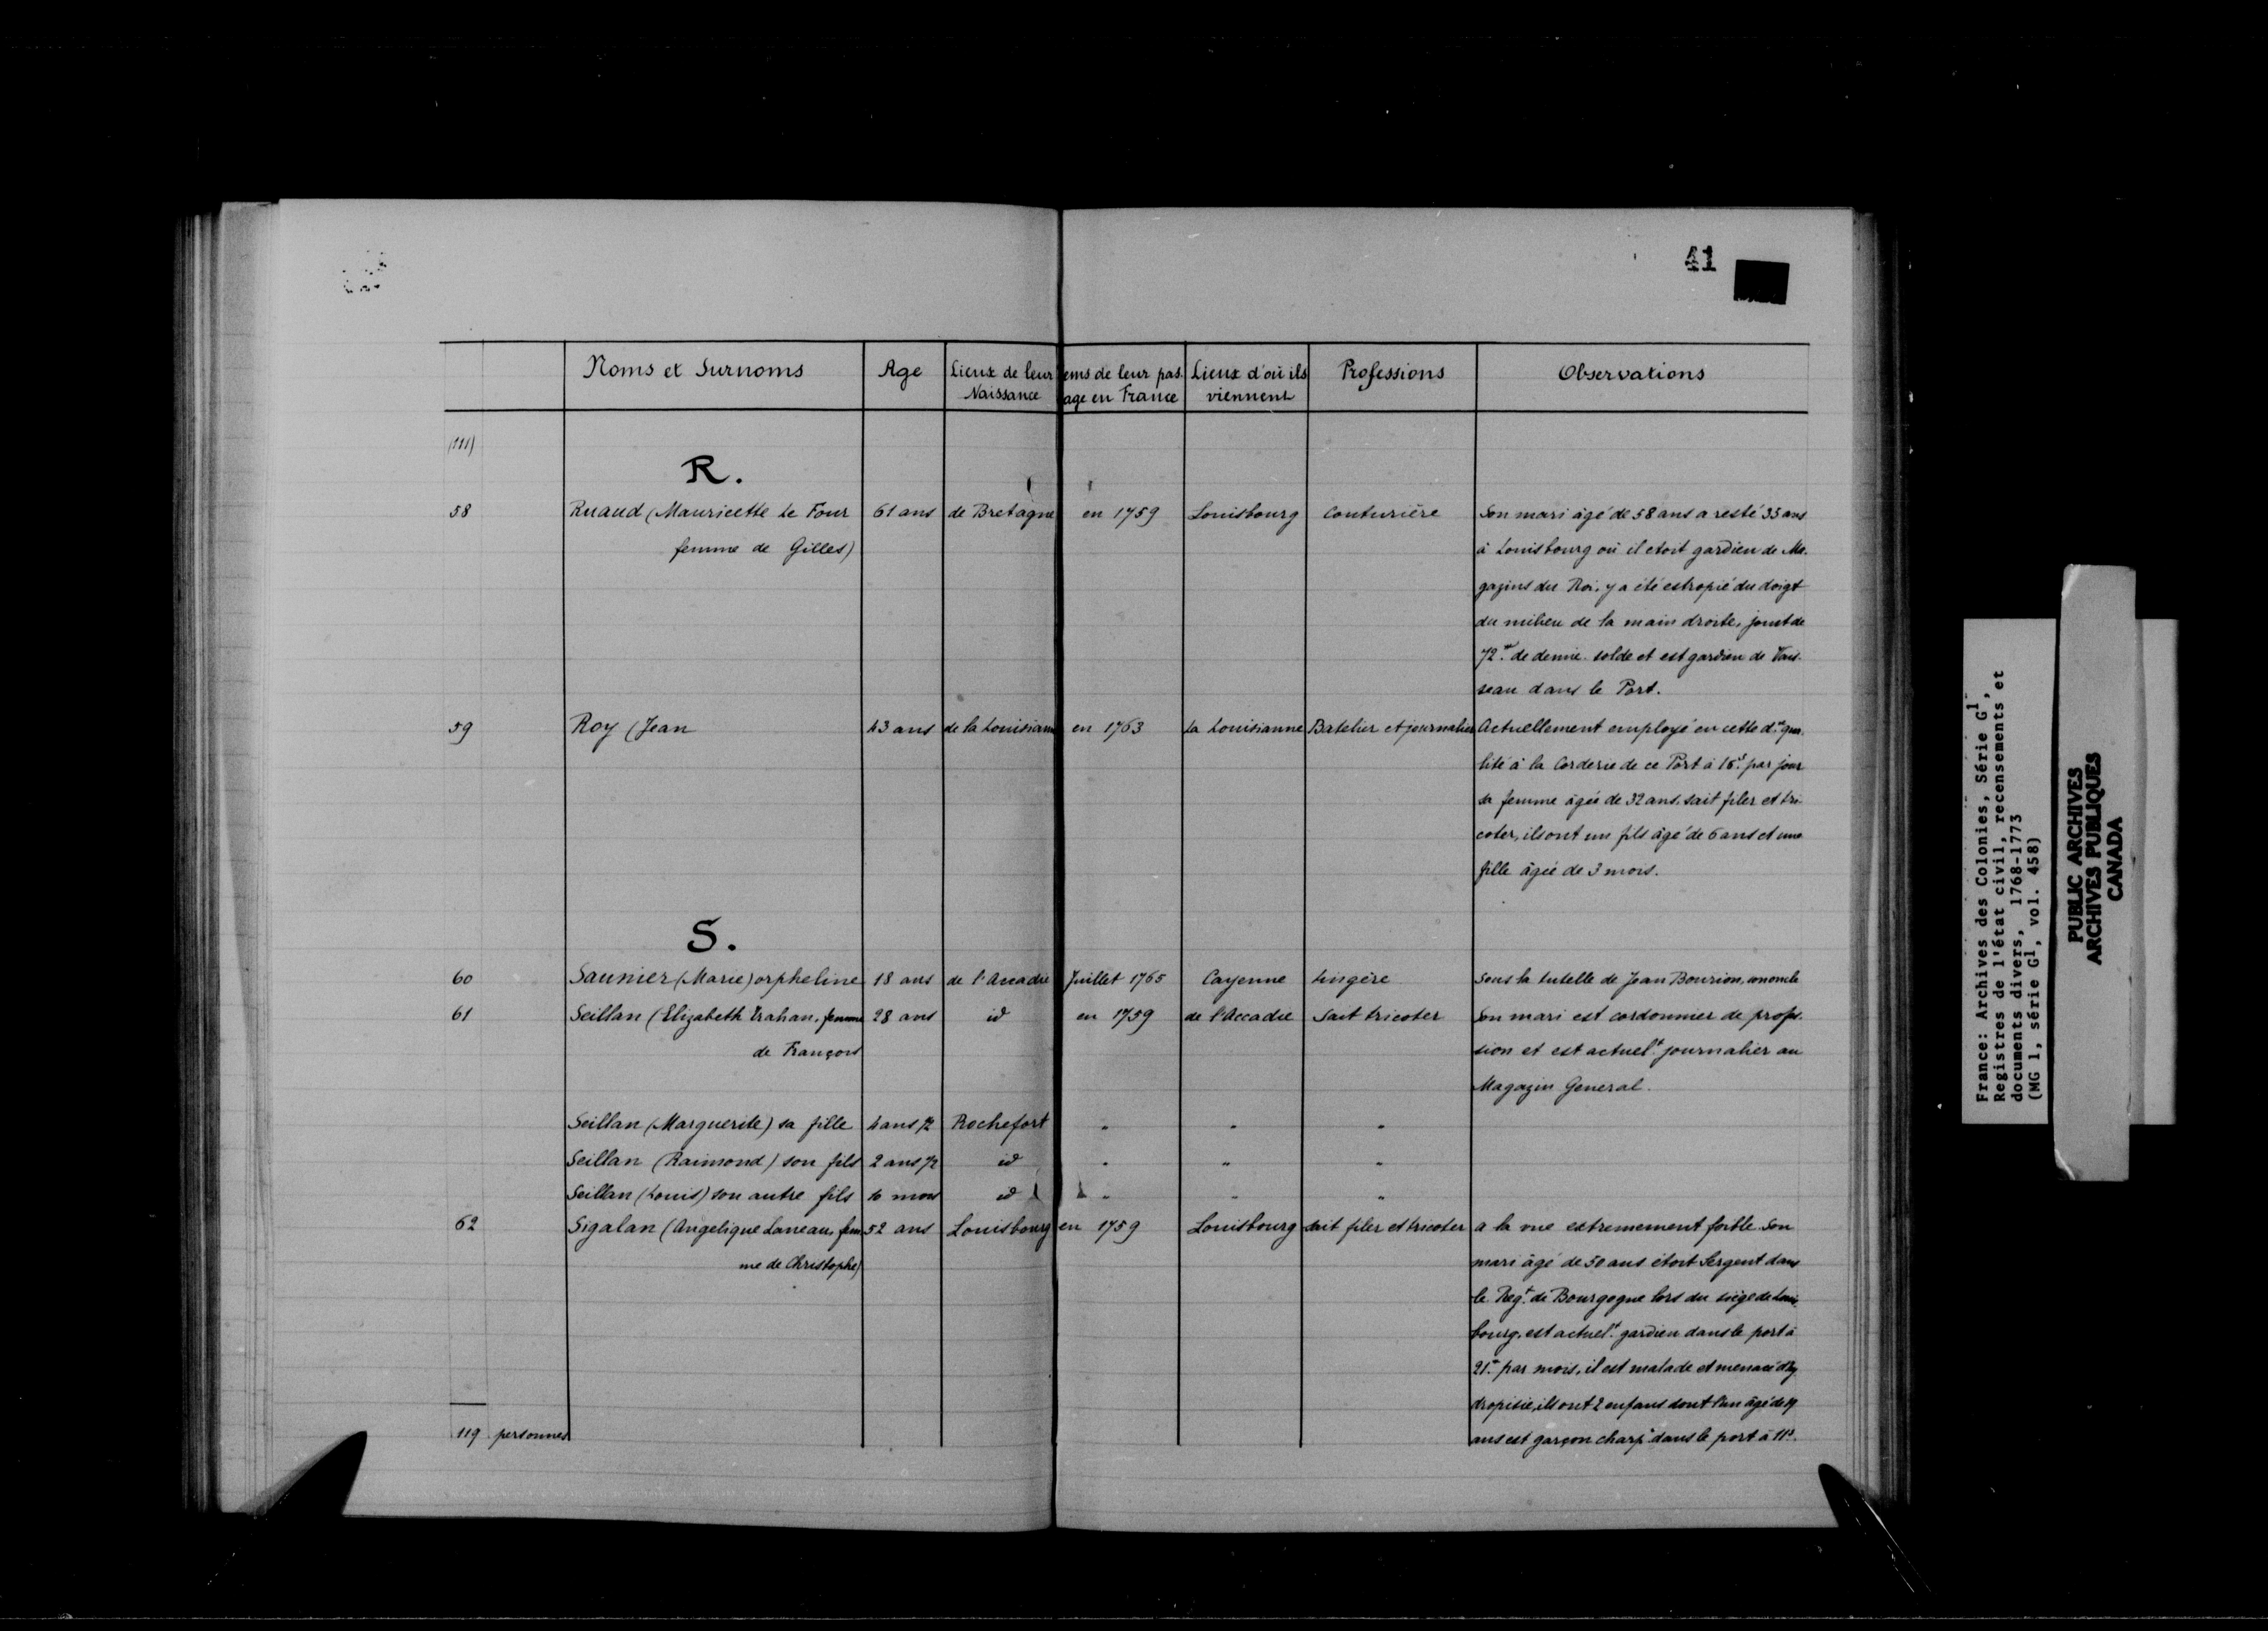 41
Noms et Surnoms | Age | Lieux de leur Naissance | ems de leur pas. age en France | Lieux d'où ils viennent | Professions | Observations
(111)
R.
58 | Ruaud (Mauricette Le Four | 61 ans | de Bretagne | en 1759 | Louisbourg | Couturière | Son mari âgé de 58 ans a resté 35 ans
femme de Gilles) | à Louisbourg où il etoit gardien de Ma.
gazins du Roi, y a été estropié du doigt
du milieu de la main droite, jouit de
72.# de demie solde et est gardien de Vais.
seau dans le Port.
59 | Roy (Jean | 43 ans | de la Louisiane | en 1763 | La Louisianne | Batelier et journalier | Actuellement employé en cette d.e qua
lité à la Corderie de ce Port à 16.s par jour
sa femme âgée de 32 ans, sait filer et tri
coter, ils ont un fils âgé de 6 ans et une
fille âgée de 3 mois.
S.
60 | Saunier (Marie) orpheline | 18 ans | de l'Accadie | Juillet 1765 | Cayenne | Lingère | Sous la tutelle de Jean Bourion, son oncle
61 | Seillan (Elizabeth Trahan, femme | 28 ans | id | en 1759 | de l'Accadie | Sait tricoter | Son mari est cordonnier de profes.
de François | sion et est actuel.t journalier au
Magazin General.
Seillan (Marguerite) sa fille | 4 ans 1/2 | Rochefort | " | " | "
Seillan (Raimond) son fils | 2 ans 1/2 | id | " | " | "
Seillan (Louis) son autre fils | mois | id | " | " | "
62 | Sigalan (Angelique Laneau, fem | 52 ans | Louisbourg | en 1759 | Louisbourg | sait filer et tricoter | a la vue extremement foible son
me de Christophe) | mari âgé de 50 ans étoit Sergent dans
le Reg.t de Bourgogne lors du siège de Louis.
bourg, est actuel.t gardien dans le port à
21.# par mois, il est malade et menacé d'hy
dropisie, ils ont 2 enfans dont l'un âgé de
ans est garçon charp.r dans le port à 11s.
119 personnes
France: Archives des Colonies, Série G1,
Registres de l'état civil, recensements et
documents divers, 1768-1773
(MG 1, série G1, vol. 458)
PUBLIC ARCHIVES
ARCHIVES PUBLIQUES
CANADA